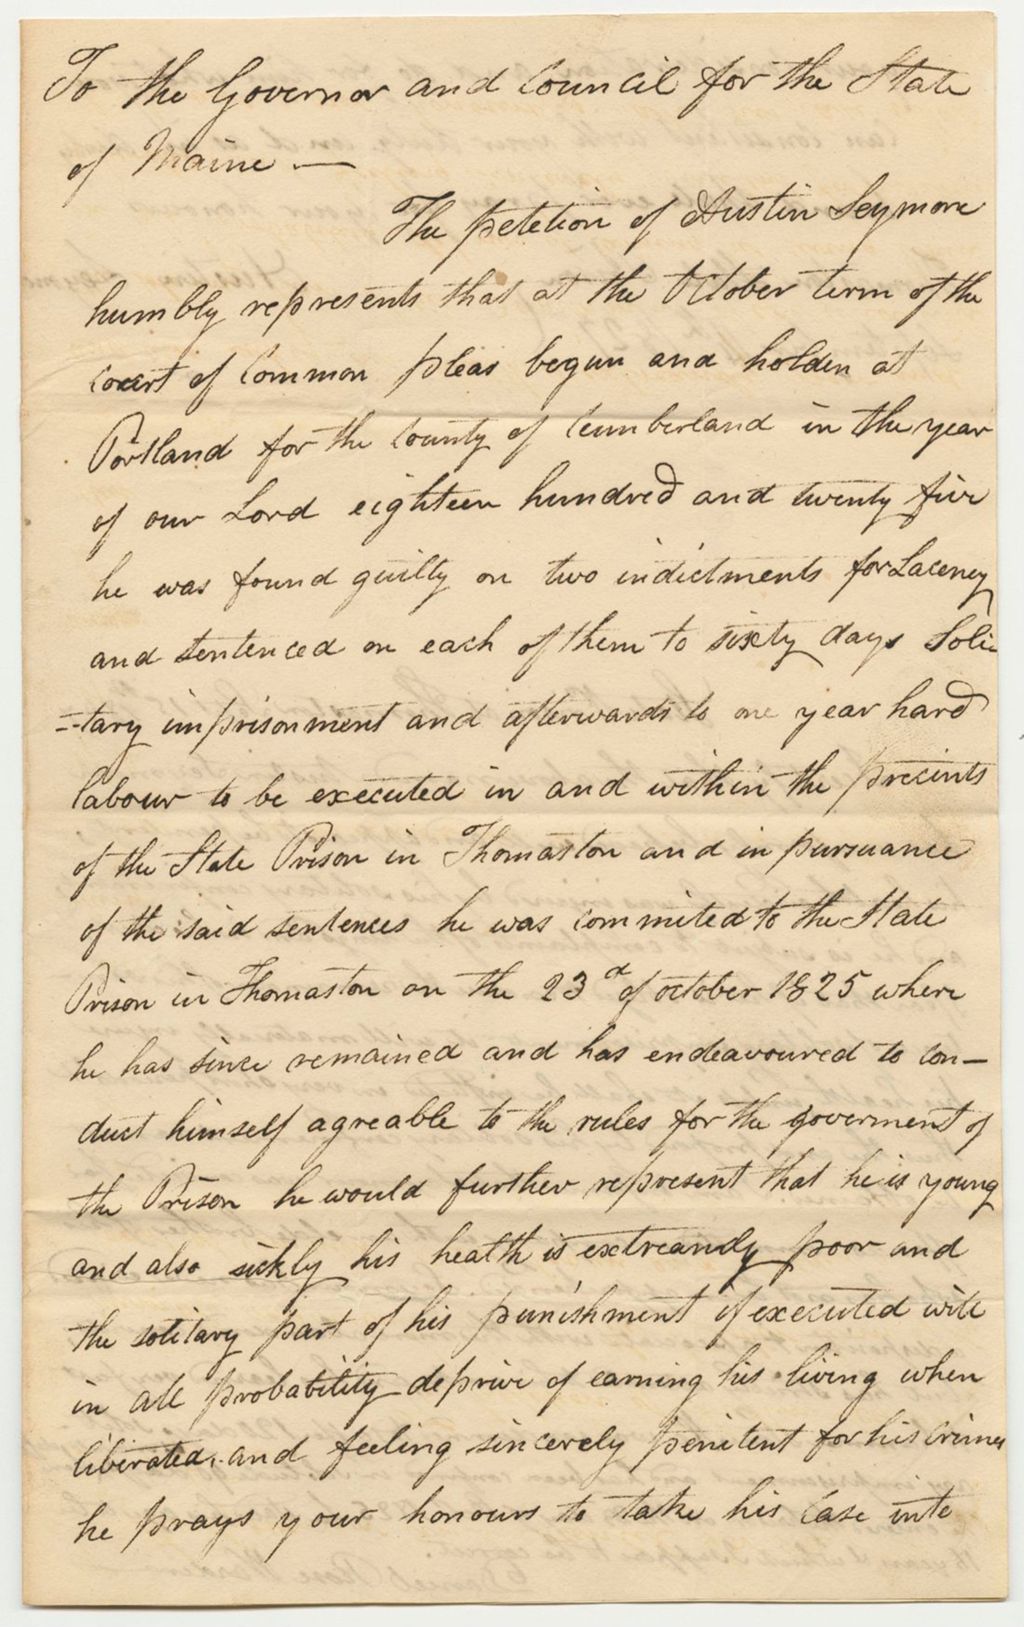 To the Governor and Council for the State
of Maine —
The petetion of Austin Seymore
humbly represents that at the October term of the
court of Common pleas begun and holden at
Portland for the County of Cumberland in the year
of our Lord eighteen hundred and twenty five
he was found guilty on two indictments for Laceney
and sentenced on each of them to sixty days Soli-
-tary imprisonment and afterwards to one year hard
labour to be executed in and within the precints
of the State Prison in Thomaston and in pursuance
of the said sentences he was commited to the State
Prison in Thomaston on the 23d of october 1825 where
he has since remained and has endeavoured to con-
duct himself agreable to the rules for the goverment of
the Prison he would further represent that he is young
and also sickly his health is extreamly poor and
the solitary part of his punishment if executed will
in all probability deprive of earning his living when
liberated, and feeling sincerely penitent for his crimes
he prays your honours to take his Case into